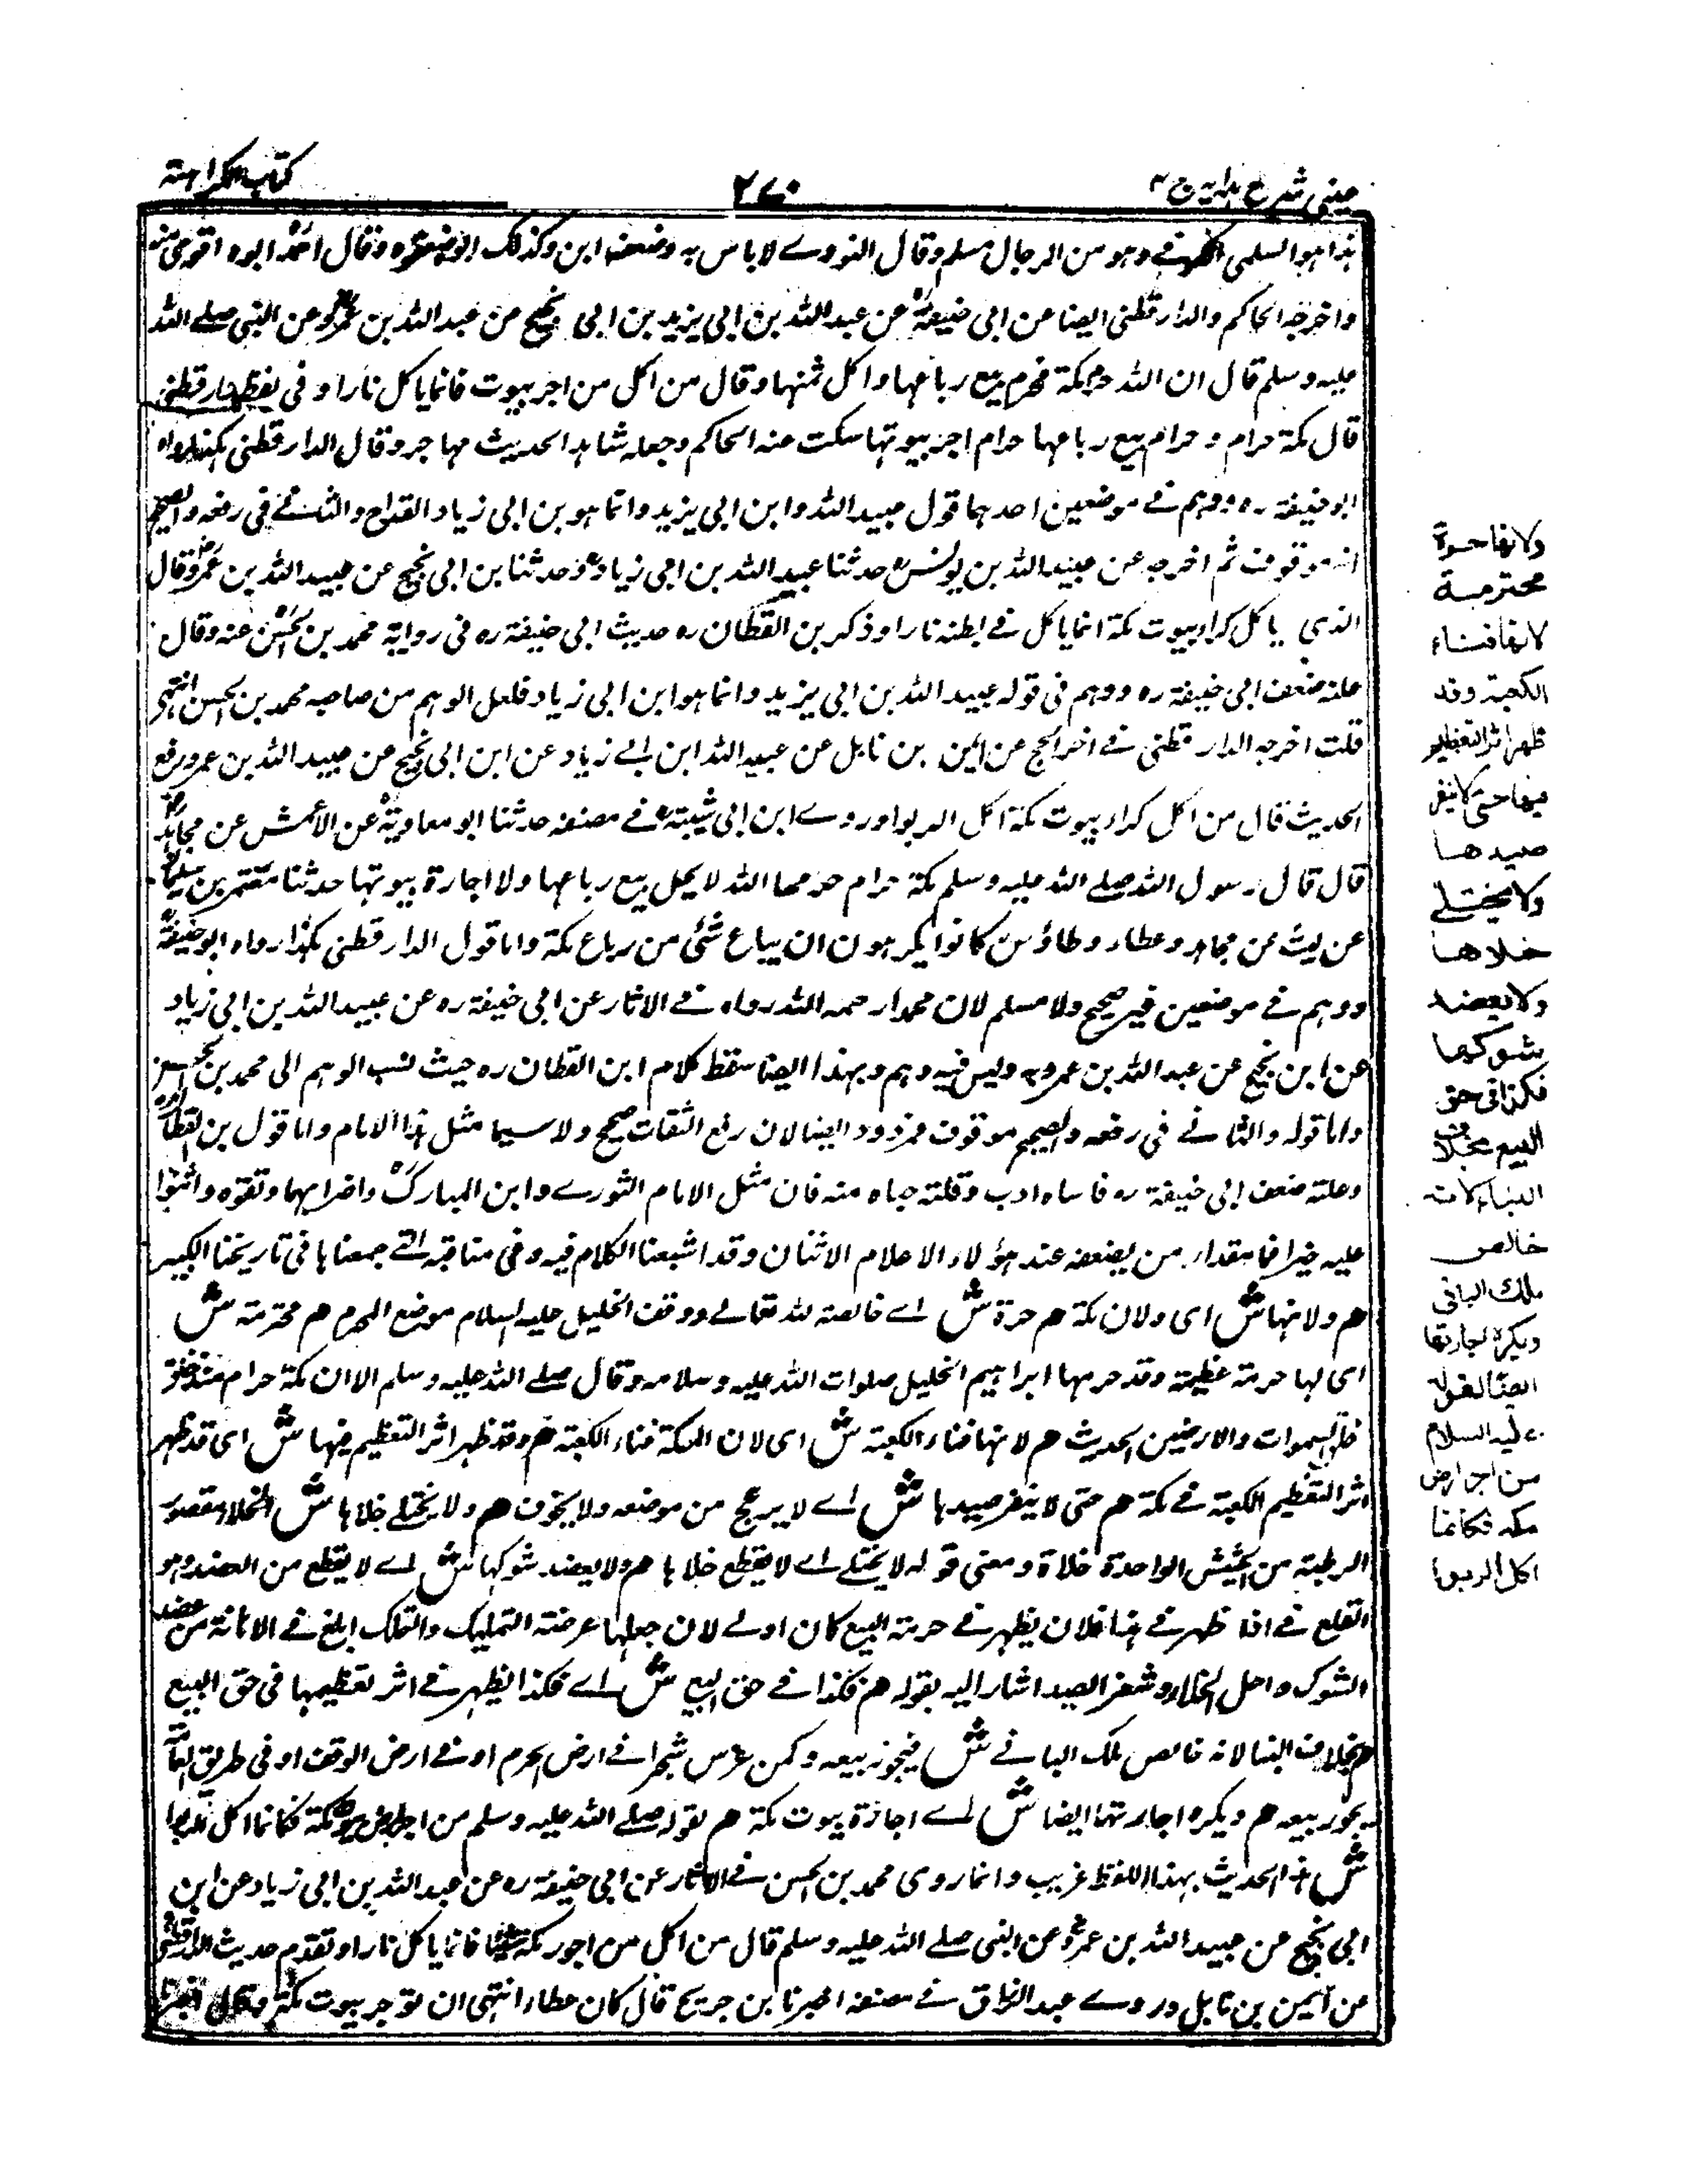 عینی شرح ہدایہ ج ۴
٢٧٠
کتاب الکراہتہ
ہذا ہو السلمی وہو من الرجال مسلم وقال النووے لا باس بہ وضعفہ ابن وکذلک وقال ابوہ اقوی منہ
واخرجہ الحاکم والدارقطنی ایضا عن ابی حنیفۃ عن عبد اللہ بن ابی یزید بن ابی نجیح عن عبد اللہ بن عمرو عن النبی صلے اللہ
علیہ وسلم قال ان اللہ حرم مکۃ فحرم بیع رباعہا واکل ثمنہا وقال من اکل من اجر بیوت فانما یاکل نارا و فی لفظ قطنی
قال مکۃ حرام و حرام بیع رباعہا حرام اجر بیوتہا سکت عنہ الحاکم وجعلہ شاہد الحدیث مہاجر وقال الدارقطنی ہکذا رواہ
ابو حنیفۃ رہ ووہم فے موضعین احدہما قول عبید اللہ وابن ابی یزید وانما ہو بن ابی زیاد القداح والثانے فی رفعہ والصحیح
انہ موقوف ثم اخرجہ عن عبید اللہ بن یونس حدثنا عبید اللہ بن ابی زیاد وحدثنا بن ابی نجیح عن عبید اللہ بن عمر وقال
الذی یاکل کراء بیوت مکۃ انما یاکل فے بطنہ نارا وذکر بن القطان رہ حدیث ابی حنیفۃ رہ فی روایۃ محمد بن الحسن عنہ وقال
علتہ ضعف ابی حنیفۃ رہ ووہم فی قولہ عبید اللہ بن ابی یزید وانما ہو ابن ابی زیاد فلعل الوہم من صاحبہ محمد بن الحسن انتہی
قلت اخرجہ الدار قطنی فے اخر الحج عن ایمن بن نابل عن عبید اللہ ابن ابے زیاد عن ابن ابی نجیح عن عبید اللہ بن عمرو رفع
الحدیث قال من اکل کراء بیوت مکۃ اکل الربوا وروے ابن ابی شیبۃ فے مصنفہ حدثنا ابو معاویۃ عن الاعمش عن مجاہد
قال قال رسول اللہ صلے اللہ علیہ وسلم مکۃ حرام حرمہا اللہ لا یحل بیع رباعہا ولا اجارۃ بیوتہا حدثنا معتمر بن سلیمان
عن لیث عن مجاہد وعطاء وطاؤس کانوا یکرہون ان یباع شئی من رباع مکۃ واما قول الدارقطنی ہکذا رواہ ابو حنیفۃ
ووہم فے موضعین غیر صحیح ولا مسلم لان محمدا رحمہ اللہ رواہ فے الاثار عن ابی حنیفۃ رہ عن عبید اللہ بن ابی زیاد
عن ابن نجیح عن عبد اللہ بن عمرو ولیس فیہ وہم وبہذا ایضا سقط کلام ابن القطان رہ حیث نسب الوہم الی محمد بن الحسن
واما قولہ والثانے فی رفعہ والصحیح موقوف فمردود ایضا لان رفع الثقات صحیح ولا سیما مثل ہذا الامام واما قول بن القطان
وعلتہ ضعف ابی حنیفۃ رہ فاساءہ ادب وقلتہ حیاء منہ فان مثل الامام الثورے وابن المبارک واضرابہما وثقوہ واثنوا
علیہ خیرا فما مقدار من یضعفہ عند ہؤلاء الاعلام الاثنان وقد اشبعنا الکلام فیہ وفی مناقبہ التے جمعناہا فی تاریخنا الکبیر
ھم ولانہا ش ای ولان مکۃ ھم حرۃ ش اے خالصۃ للہ تعالے ووقف الخلیل علیہ السلام موضع الحرم ھم محترمۃ ش
ای لہا حرمۃ عظیمۃ وقد حرمہا ابراہیم الخلیل صلوات اللہ علیہ وسلامہ وقال صلے اللہ علیہ وسلم الا ان مکۃ حرام منذ خلق
السموات والارضین الحدیث ھم لانہا فناء الکعبۃ ش ای لان المکۃ فناء الکعبۃ ھم وقد ظہر اثر التعظیم فیہا ش ای قد ظہر
اثر التعظیم الکعبۃ فے مکۃ ھم حتی لا ینفر صیدہا ش اے لا یزعج من موضعہ ولا یخوف ھم ولا یختلے خلاہا ش الخلا مقصور
الرطبۃ من الحشیش الواحدۃ خلاۃ ومعنی قولہ لا یختلے اے لا یقطع خلاہا ھم ولا یعضد شوکہا ش اے لا یقطع من العضد وہو
القلع فے اذا ظہر فے ہذا فلان یظہر فے حرمۃ البیع کان اولے لان جعلہا عرضۃ التملیک والتملک ابلغ فے الاہانۃ من عضد
الشوک واحل الخلا وشغر الصید اشار الیہ بقولہ ھم فکذا فے حق البیع ش اے فکذا یظہر فے اثر تعظیمہا فی حق البیع
ھم بخلاف البنا لانہ خالص ملک البانے ش فیجوز بیعہ وکمن غرس شجرا فے ارض الحرم او فے ارض الوقف او فی طریق العامۃ
یجوز بیعہ ھم ویکرہ اجارتہا ایضا ش اے اجارۃ بیوت مکۃ ھم لقولہ صلے اللہ علیہ وسلم من اجر ارض مکۃ فکانما اکل الربوا
ش ہذا الحدیث بہذا اللفظ غریب وانما روی محمد بن الحسن فے الاثار عن ابی حنیفۃ رہ عن عبد اللہ بن ابی زیاد عن ابن
ابی نجیح عن عبید اللہ بن عمرو عن النبی صلے اللہ علیہ وسلم قال من اکل من اجور مکۃ فانما یاکل نارا وتقدم حدیث الدارقطنی
عن ایمن بن نابل وروے عبد الرزاق فے مصنفہ اخبرنا ابن جریج قال کان عطاء انتہی ان توجر بیوت مکۃ
ولانها حرة
محترمة
لانها فناء
الكعبة وقد
ظهر اثر التعظيم
فيها حتى لا ينفر
صيدها
ولا يختلے
خلاها
ولا يعضد
شوكها
فكذا فی حق
البيع بخلاف
البناء لانه
خالص
ملك البانی
ويكره اجارتها
ايضا لقوله
عليه السلام
من اجر ارض
مكة فكانما
اكل الربوا